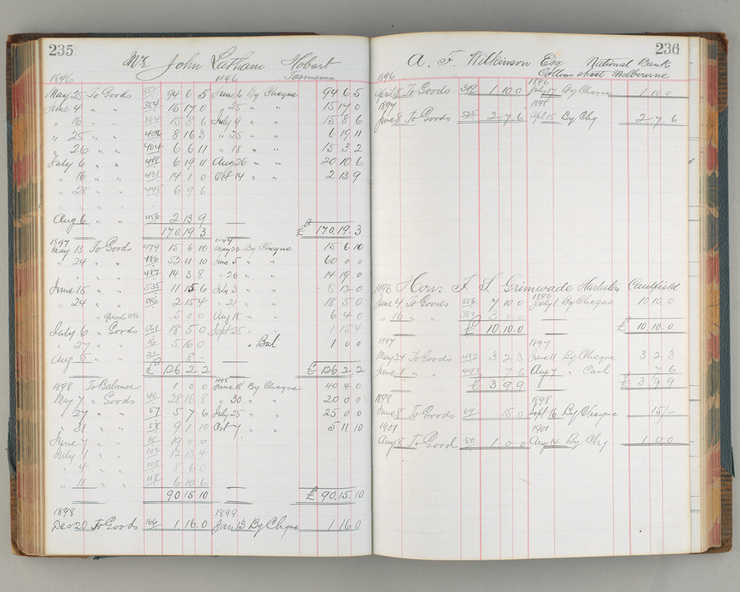 235
Mr John Latham Hobart
Tasmania
1896 1896
May 25 To Goods 94 6 5 June 2 By Cheque 94 6 5
June 4 " " 354 15 17 0 " 25 " " 15 17 0
" 16 " " 384 15 8 6 July 9 " " 15 8 6
" 25 " " 404 8 16 3 " 25 " " 6 19 11
" 26 " " 404 6 6 11 " 18 " " 15 3 2
July 6 " " 418 6 19 11 Aug 26 " " 20 10 6
" 16 " " 431 14 1 0 Oct 14 " " 2 13 9
" 28 " " 445 6 9 6
Aug 6 " " 456 2 13 9
170 19 3 £ 170 19 3
1897 1897
May 13 To Goods 479 15 6 10 May 22 By Cheque 15 6 10
" 24 " " 486 52 11 10 June 5 " " 60 0 0
" " " 487 14 3 8 " 26 " " 14 19 0
June 15 " " 535 11 15 6 July 3 " " 8 12 0
" 24 " " 2 15 4 " 21 " " 18 5 0
" " 5 0 0 Aug 18 " " 6 4 0
July 6 " Goods 561 18 5 0 Sept 25 " " 1 15 4
" 27 " " 5 16 0 " Bal 1 0 0
Aug 5 " " 8 -
£ 126 2 2 £ 126 2 2
1898 To Balance 1 0 0 1898 June 18 By Cheque 40 4 0
May 7 " Goods 40 28 16 8 " 30 " " 20 0 0
" 27 " " 57 5 7 6 July 25 " " 25 0 0
" 31 " " 58 9 1 10 Oct 7 " " 5 11 10
June 7 " " 19 0 0
July 1 " " 102 12 13 4
" 4 " " 103 8 6 0
" 11 " " 118 6 10 6
90 15 10 £ 90 15 10
1898 1899
Dec 20 To Goods 166 1 16 0 Jan 13 By Cheque 1 16 0
236
A. F. Wilkinson Esq National Bank
Collins Street Melbourne
1896 1896
April 18 To Goods 1 10 0 July 17 By Cheque 1 10 0
1897 1898
June 8 To Goods 525 2 7 6 Apl 15 By Chq 2 7 6
1896 Hon: F S Grimwade Caulfield
June 4 To Goods 356 7 10 0 1896 July 1 By Cheque 10 10 0
" 16 " " 384 3 0 0
£ 10 10 0 £ 10 10 0
1897 1897
May 24 To Goods 487 3 2 3 June 11 By Cheque 3 2 3
June 1 " " 497 7 6 Aug 7 " Cash 7 6
£ 3 9 9 £ 3 9 9
1898 1898
June 8 To Goods 67 15 0 Sept 16 By Cheque 15/-
1901 1901
Aug 8 To Goods 80 1 0 0 Aug 14 By Chq 1 0 0